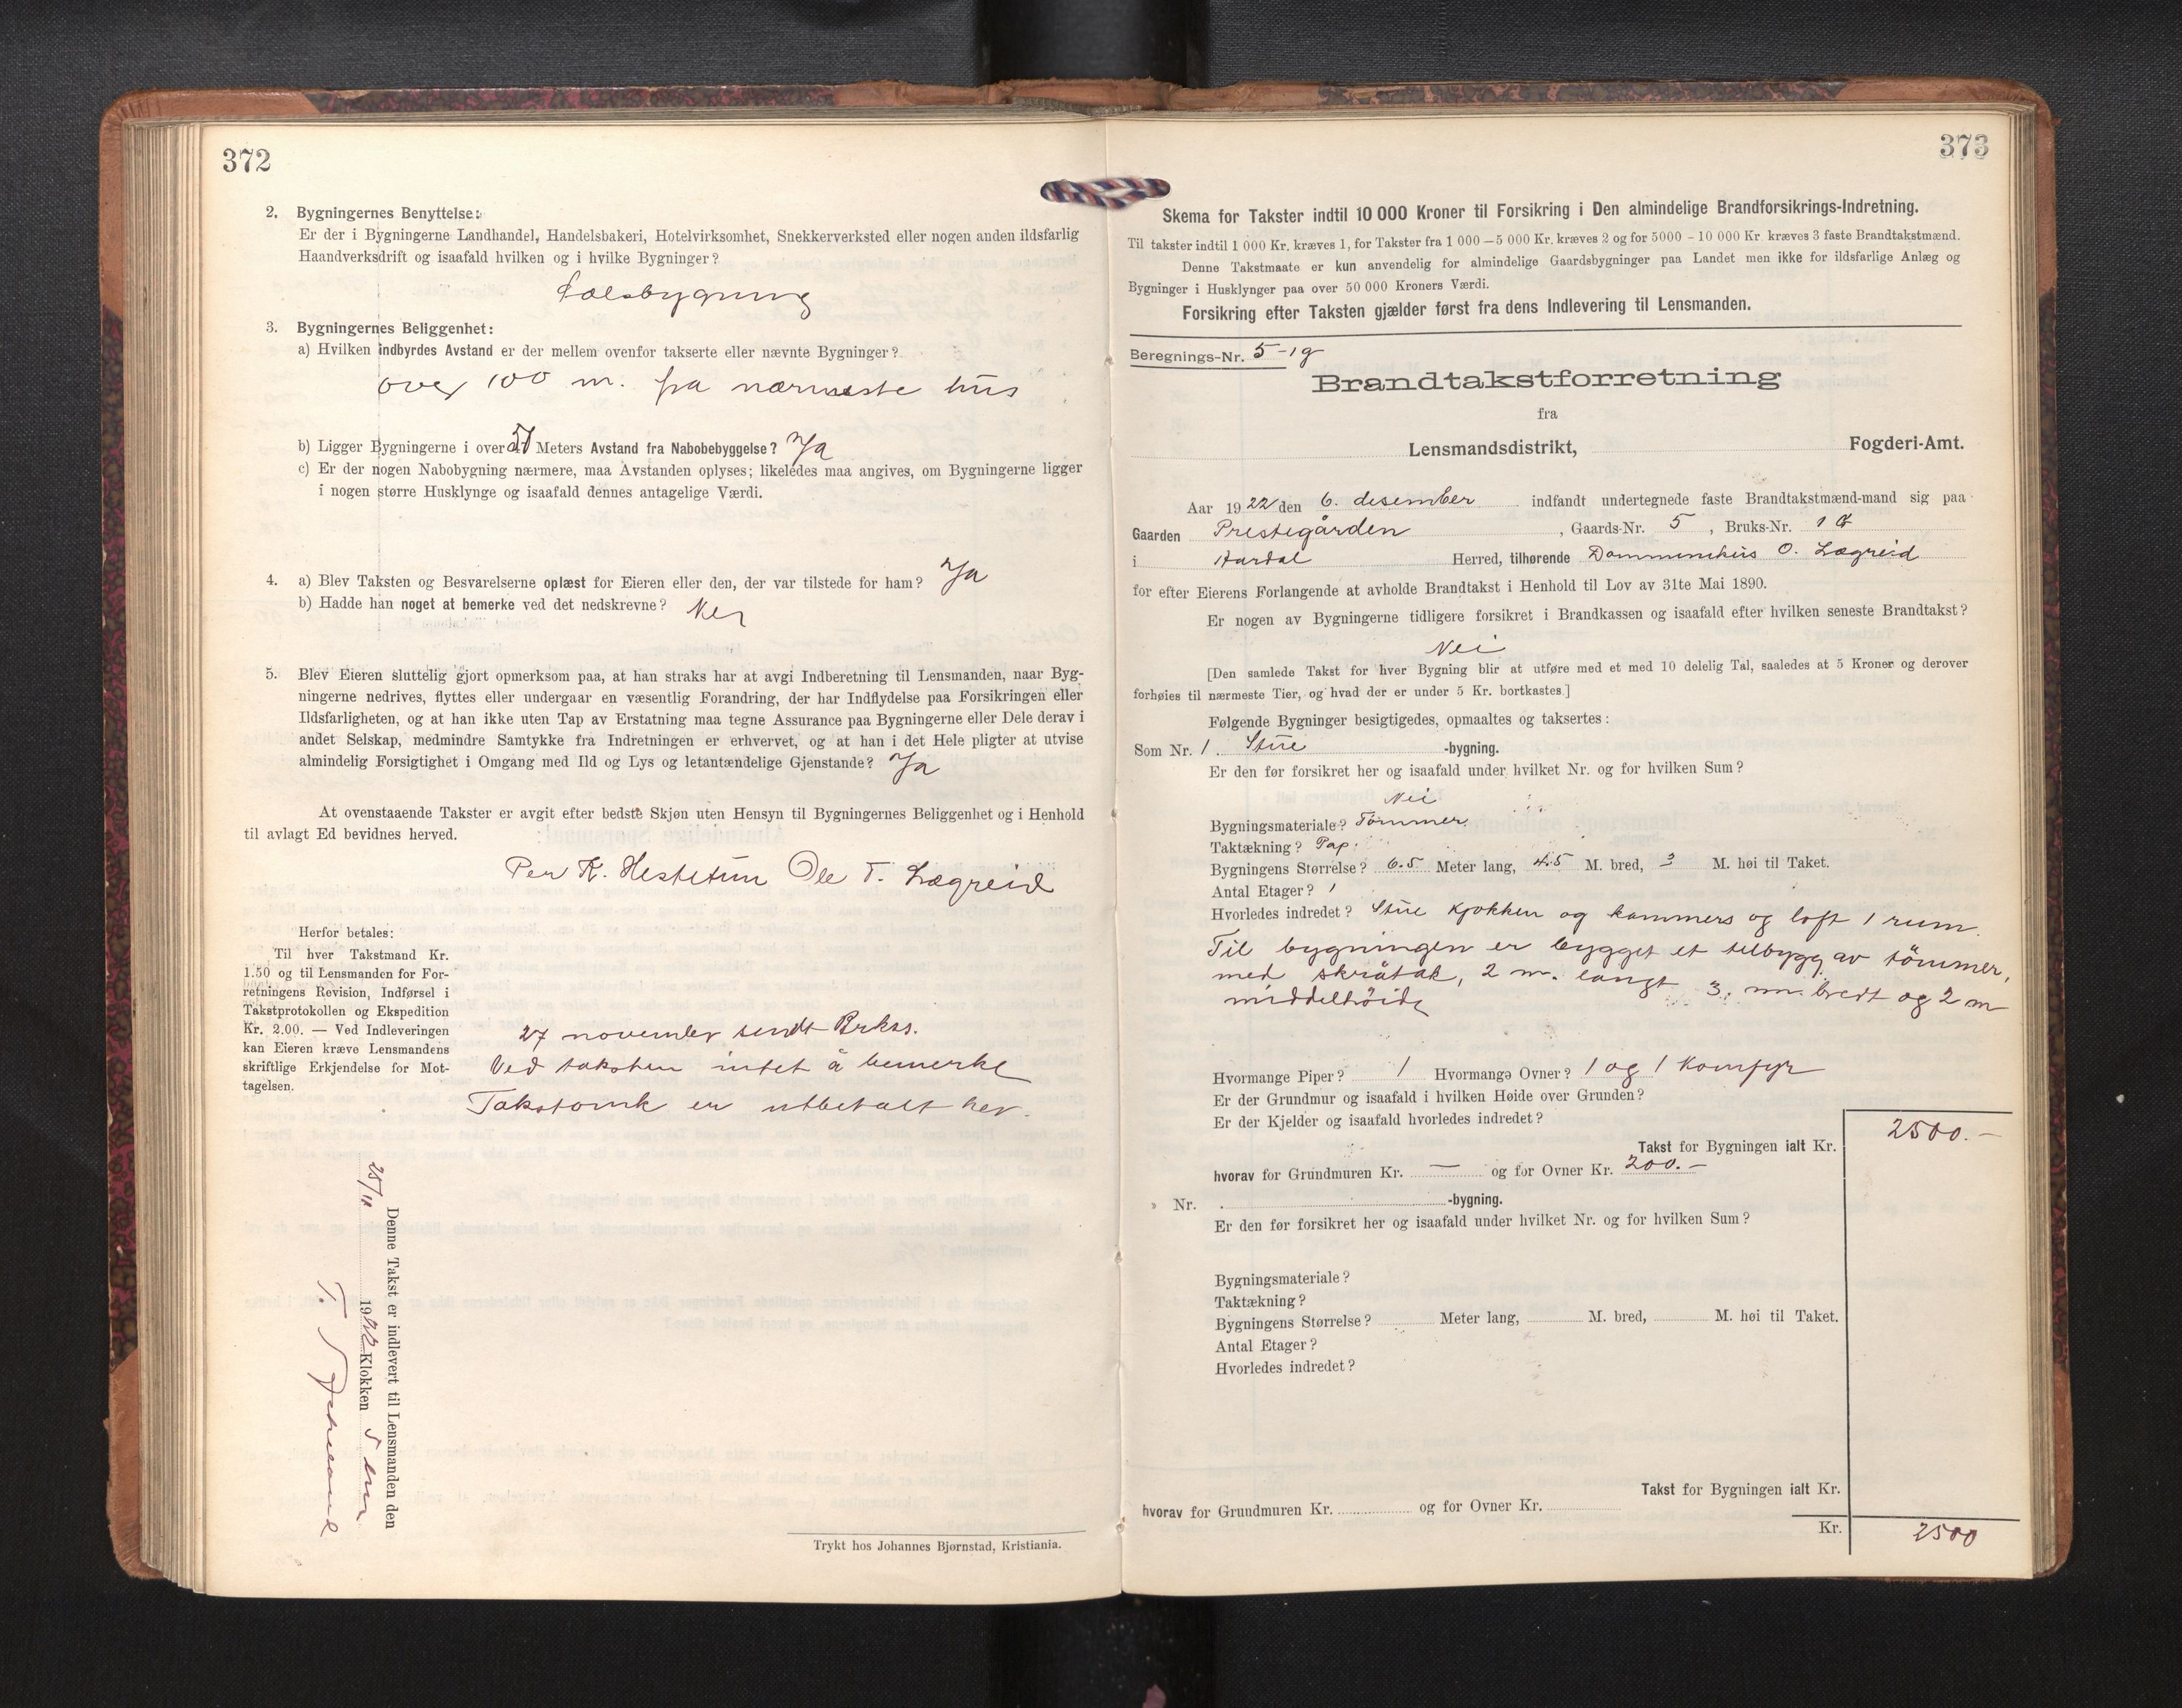 372
2. Bygningernes Benyttelse:
Er der i Bygningerne Landhandel, Handelsbakeri, Hotelvirksomhet, Snekkerverksted eller nogen anden ildsfarlig
Haandverksdrift og isaafald hvilken og i hvilke Bygninger?
3. Bygningernes Beliggenhet:
a) Hvilken indbyrdes Avstand er der mellem ovenfor takserte eller nævnte Bygninger?
over 100 m. fra nærmeste hus
b) Ligger Bygningerne i over Meters Avstand fra Nabobebyggelse? Ja
c) Er der nogen Nabobygning nærmere, maa Avstanden oplyses; likeledes maa angives, om Bygningerne ligger
i nogen større Husklynge og isaafald dennes antagelige Værdi.
4. a) Blev Taksten og Besvarelserne oplæst for Eieren eller den, der var tilstede for ham? Ja
b) Hadde han noget at bemerke ved det nedskrevne? Nei
5. Blev Eieren sluttelig gjort opmerksom paa, at han straks har at avgi Indberetning til Lensmanden, naar Byg-
ningerne nedrives, flyttes eller undergaar en væsentlig Forandring, der har Indflydelse paa Forsikringen eller
Ildsfarligheten, og at han ikke uten Tap av Erstatning maa tegne Assurance paa Bygningerne eller Dele derav i
andet Selskap, medmindre Samtykke fra Indretningen er erhvervet, og at han i det Hele pligter at utvise
almindelig Forsigtighet i Omgang med Ild og Lys og letantændelige Gjenstande? Ja
At ovenstaaende Takster er avgit efter bedste Skjøn uten Hensyn til Bygningernes Beliggenhet og i Henhold
til avlagt Ed bevidnes herved.
Per K. Hestetun Ole T. Lægreid
Herfor betales:
Til hver Takstmand Kr.
1.50 og til Lensmanden for For-
retningens Revision, Indførsel i
Takstprotokollen og Ekspedition
Kr. 2.00. — Ved Indleveringen
kan Eieren kræve Lensmandens
skriftlige Erkjendelse for Mot-
tagelsen.
27 november sendt Brkss.
Ved taksten intet å bemerke
er utbetalt her.
Denne Takst er indlevert til Lensmanden den
25/11 1922 Klokken 5 em
T.
Trykt hos Johannes Bjørnstad, Kristiania.
373
Skema for Takster indtil 10 000 Kroner til Forsikring i Den almindelige Brandforsikrings-Indretning.
Til takster indtil 1 000 Kr. kræves 1, for Takster fra 1 000 — 5 000 Kr. kræves 2 og for 5000 - 10 000 Kr. kræves 3 faste Brandtakstmænd.
Denne Takstmaate er kun anvendelig for almindelige Gaardsbygninger paa Landet men ikke for ildsfarlige Anlæg og
Bygninger i Husklynger paa over 50 000 Kroners Værdi.
Forsikring efter Taksten gjælder først fra dens Indlevering til Lensmanden.
Beregnings-Nr. 5-19
Brandtakstforretning
fra
Lensmandsdistrikt, Fogderi-Amt.
Aar 1922 den 6. desember indfandt undertegnede faste Brandtakstmænd-mand sig paa
Gaarden Prestegården, Gaards-Nr. 5, Bruks-Nr. 1
i Aardal Herred, tilhørende O. Lægreid
for efter Eierens Forlangende at avholde Brandtakst i Henhold til Lov av 31te Mai 1890.
Er nogen av Bygningerne tidligere forsikret i Brandkassen og isaafald efter hvilken seneste Brandtakst?
Nei
[Den samlede Takst for hver Bygning blir at utføre med et med 10 delelig Tal, saaledes at 5 Kroner og derover
forhøies til nærmeste Tier, og hvad der er under 5 Kr. bortkastes.]
Følgende Bygninger besigtigedes, opmaaltes og taksertes:
Som Nr. 1. Stue -bygning.
Er den før forsikret her og isaafald under hvilket Nr. og for hvilken Sum?
Nei
Bygningsmateriale? Tømmer
Taktækning? Pap.
Bygningens Størrelse? 6.5 Meter lang, 4.5 M. bred, 3 M. høi til Taket.
Antal Etager? 1
Hvorledes indredet? Stue kjøkken og kammers og loft 1 rum.
Til bygningen er bygget et tilbygg av tömmer,
med skråtak, 2 m. langt 3. m. bredt og 2 m
middelhöide
Hvormange Piper? 1 Hvormange Ovner? 1 og 1 Komfyr
Er der Grundmur og isaafald i hvilken Høide over Grunden?
Er der Kjelder og isaafald hvorledes indredet?
Takst for Bygningen ialt Kr. 2500.—
hvorav for Grundmuren Kr. — og for Ovner Kr. 200.—
Nr. -bygning.
Er den før forsikret her og isaafald under hvilket Nr. og for hvilken Sum?
Bygningsmateriale?
Taktækning?
Bygningens Størrelse? Meter lang, M. bred, M. høi til Taket.
Antal Etager?
Hvorledes indredet?
Takst for Bygningen ialt Kr.
hvorav for Grundmuren Kr. og for Ovner Kr.
Kr. 2500